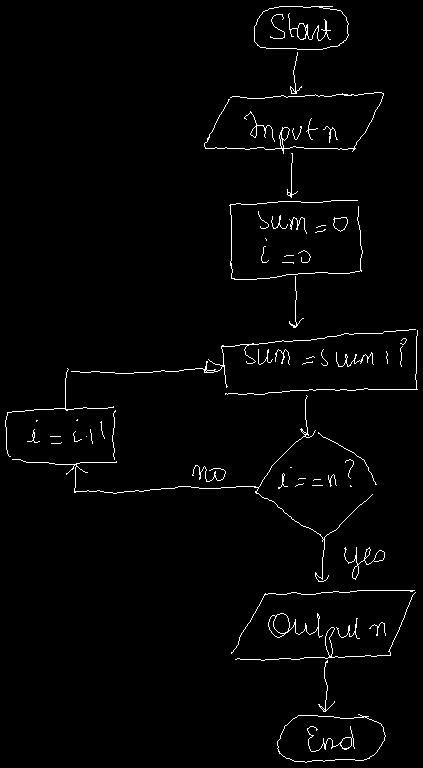 Start
Input n
sum = 0
i = 0
sum = sum + i
i = i + 1
no
i == n?
yes
Output n
End